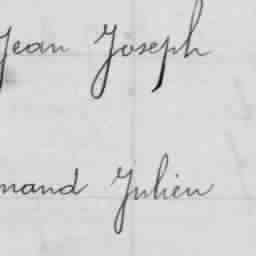 Jean Joseph
mand Julien